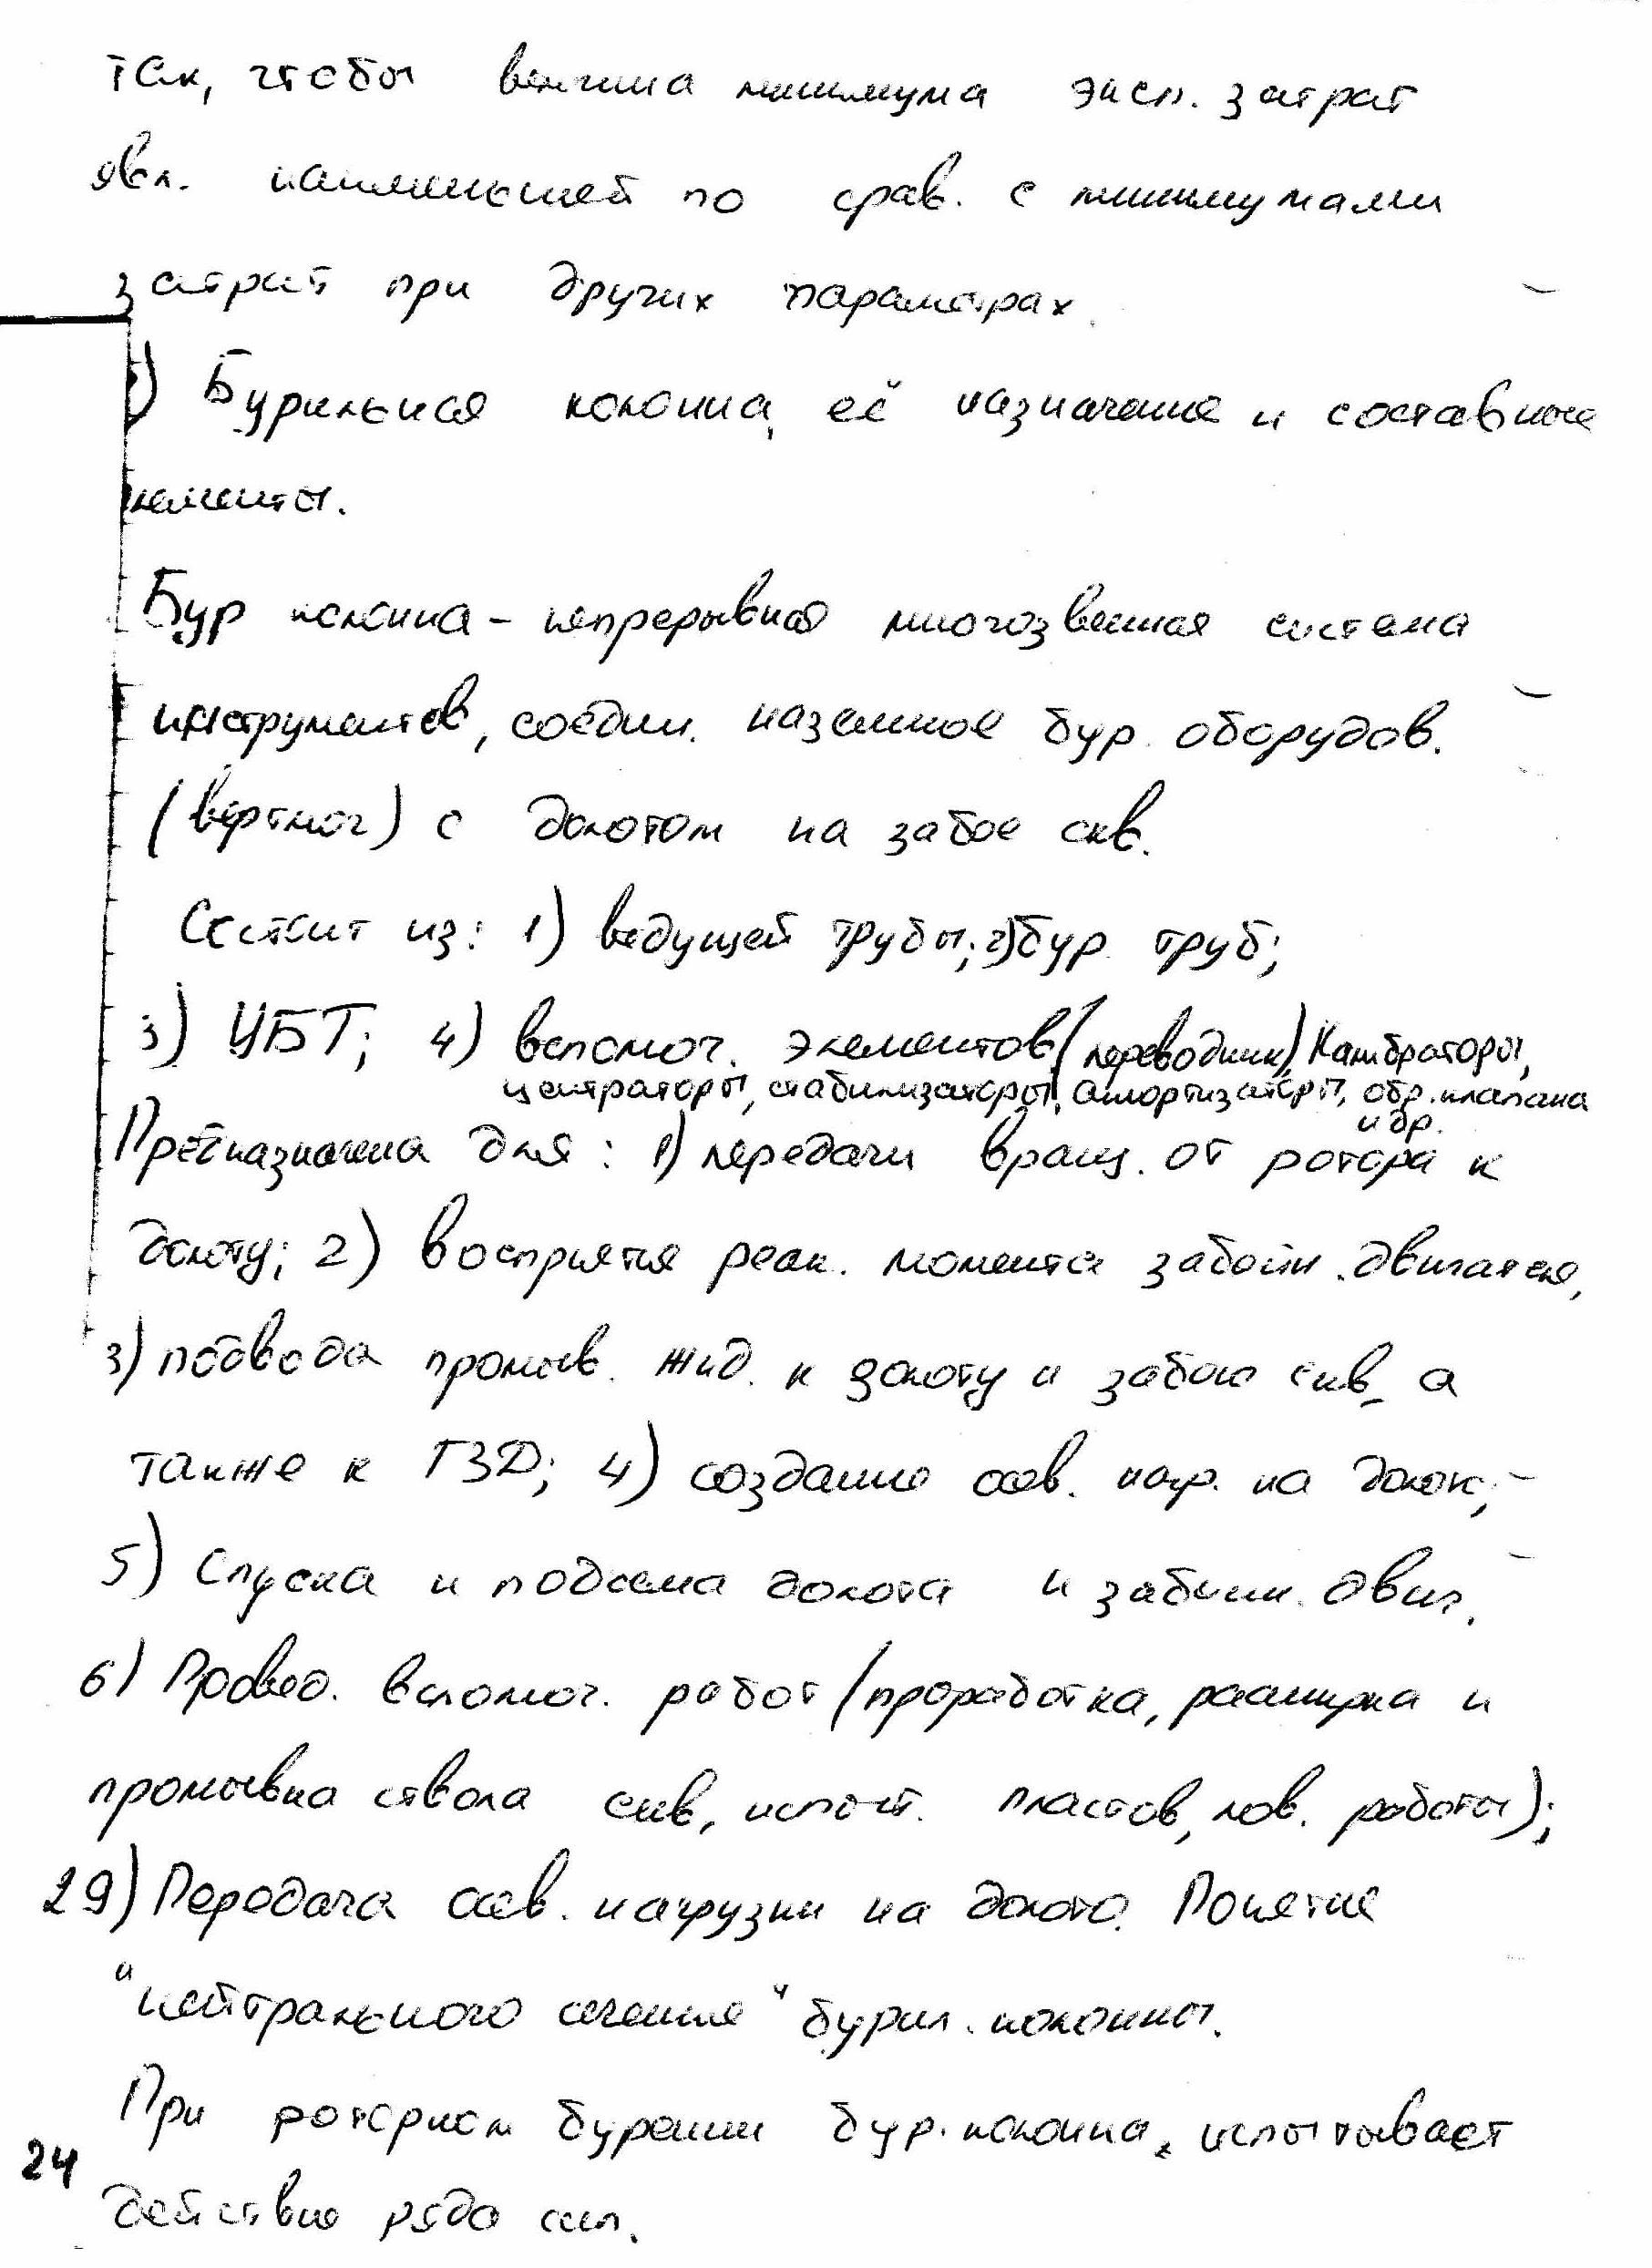 так, чтобы величина минимума эксп. затрат
явл. наименьшей по срав. с минимумами
затрат при других параметрах.
) Бурильная колонна, её назначение и составные
лементы.
Бур колонна - непрерывная многозвенная система
инструментов, соедин. наземное бур. оборудов.
(вертлюг) с долотом на забое скв.
Состоит из: 1) ведущей трубы; 2) бур. труб;
3) УБТ; 4) вспомог. элементов (переводники), Калибраторы,
центраторы, стабилизаторы, амортизаторы, обр. клапана
и др.
Предназначена для: 1) передачи вращ. от ротора к
долоту; 2) восприятия реак. момента забойн. двигателя,
3) подвода промыв. жид. к долоту и забою скв, а
также к ГЗД; 4) создание осев. нагр. на долото;
5) Спуска и подъема долота и забойн. двиг.
6) Провед. вспомог. работ (проработка, расширка и
промывка ствола скв, испыт. пластов, лов. работы);
29) Передача осев. нагрузки на долото. Понятие
"нейтрального сечения" бурил. колонны.
При роторном бурении бур. колонна, испытывает
действие ряда сил.
24